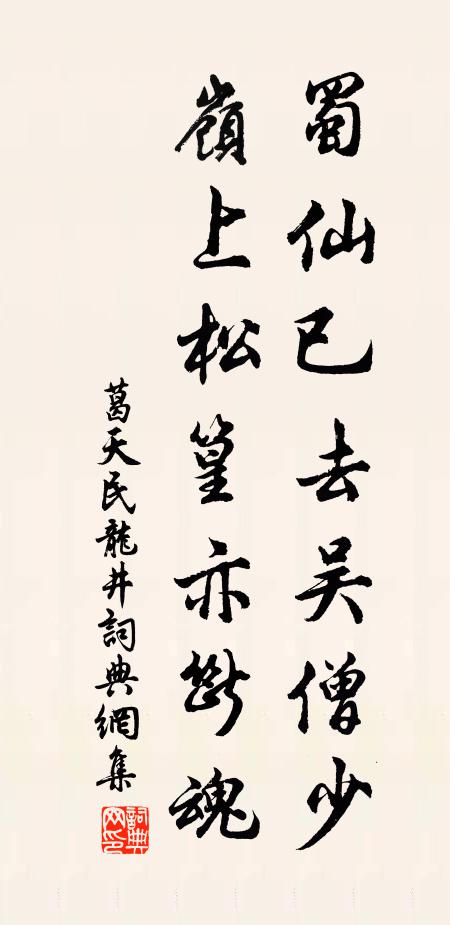 蜀仙已去吴僧少
嶺上松篁亦斷魂
葛天民龍井詞典網集
詞典網印